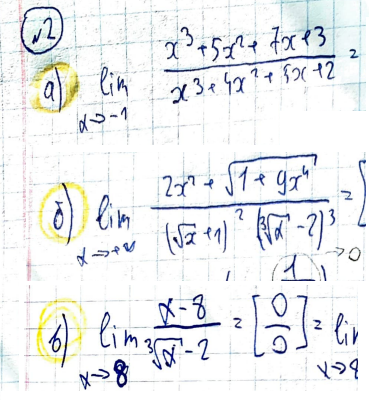 №2
а) lim x→-1 (x³+5x²+7x+3)/(x³+4x²+5x+2) =
б) lim x→+∞ (2x²+√(1+9x⁴))/((√x+1)²(∛x-2)³) = [
1 →0
в) lim x→8 (x-8)/(∛x-2) = [0/0] = lim x→8